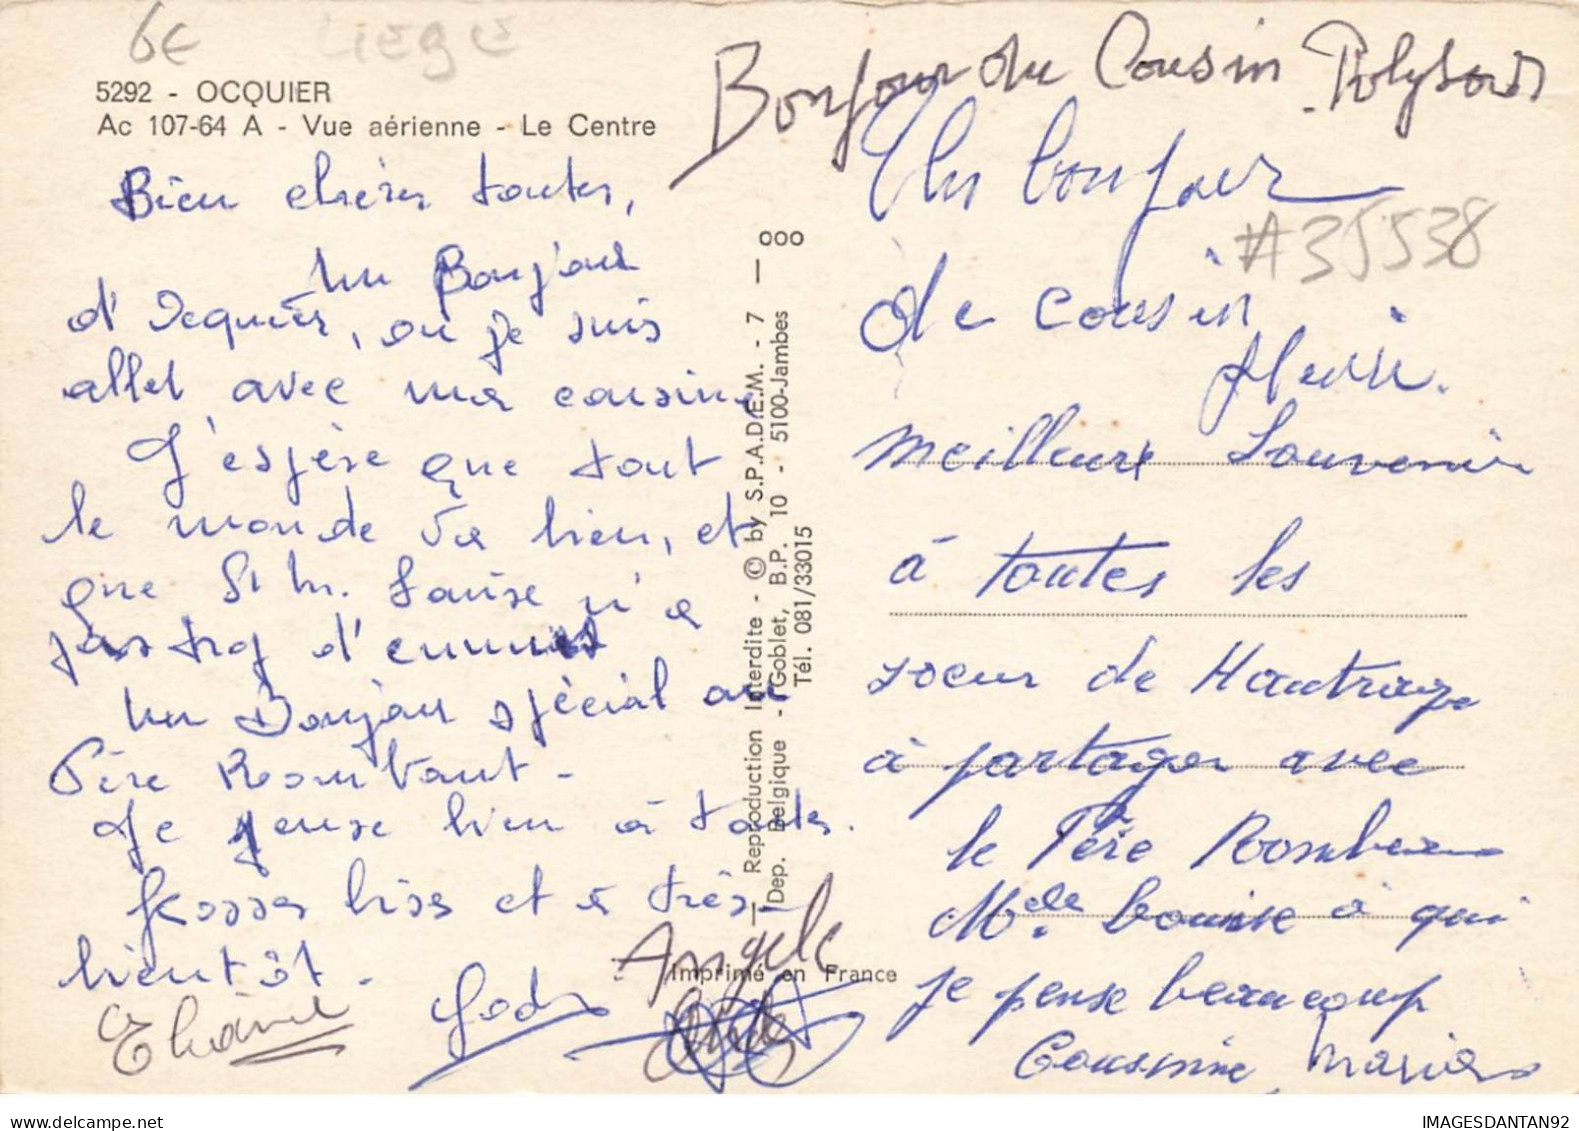 6€ LIEGE
5292 - OCQUIER
Ac 107-64 A - Vue aérienne - Le Centre
Bien chères toutes,
Un Bonjour
d'Ocquier, où je suis
allé avec ma cousine
J'espère que tout
le monde va bien, et
que St M. Louise n'a
pas trop d'ennuis
Un Bonjour spécial au
Père Rombaut -
Je pense bien à toutes.
Grosses bises et à très
bientôt -
Angele
— Reproduction Interdite - © by S.P.A.D.E.M. - 7 — 000
Dép. Belgique - Goblet, B.P. 10 - 5100-Jambes
Tél. 081/33015
Imprimé en France
Bonjour du Cousin
Un bonjour
#35538
de cousin
meilleure Souvenir
à toutes les
soeur de Hautrage
à partager avec
le Père Rombaux
Melle Louise à qui
je pense beaucoup
Coussinne Maria
www.delcampe.net
IMAGESDANTAN92